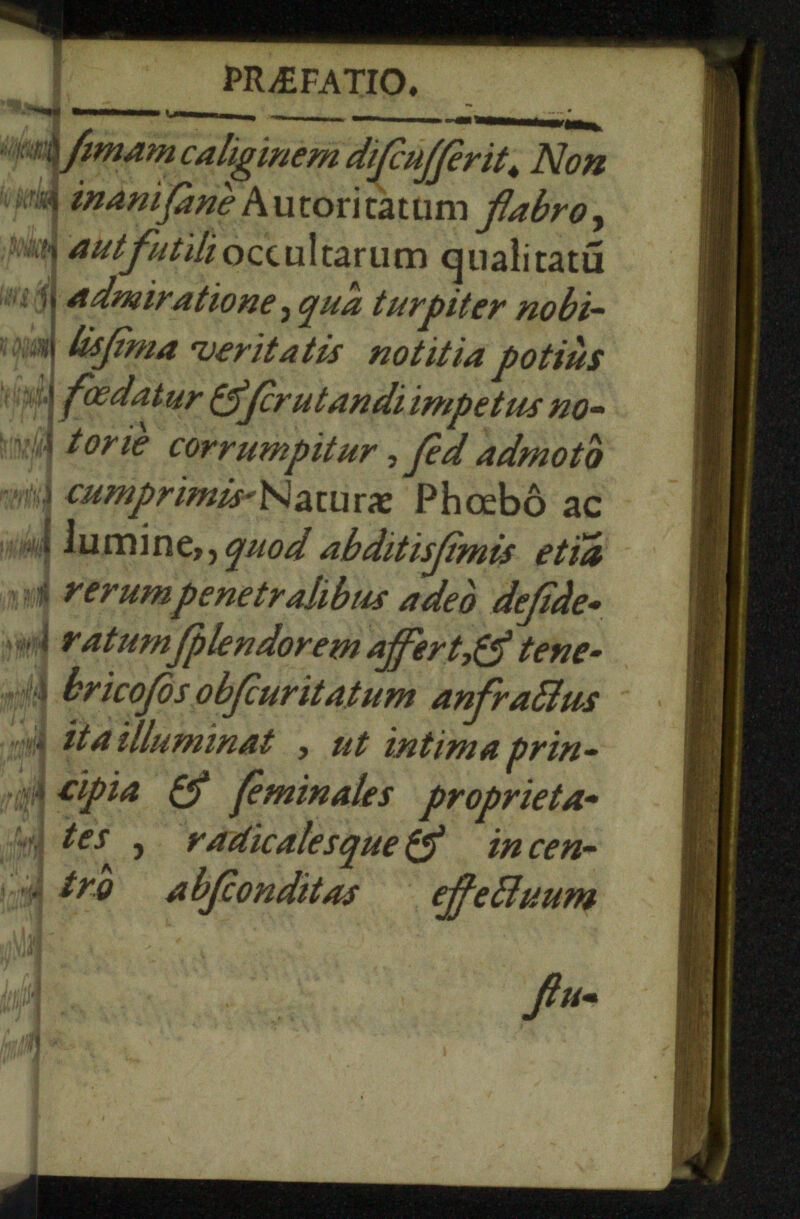 PRÆFATIO.
ſimam caliginem diſcuſſerit. Non
inani ſanè Autoritatum flabro,
aut futili occultarum qualitatū
admiratione, quâ turpiter nobi-
lisſima veritatis notitia potiùs
fœdatur & ſcrutandi impetus no-
toriè corrumpitur, ſed admotô
cumprimis Naturæ Phœbô ac
lumine, quod abditisſimis etiā
rerum penetralibus adeò deſide-
ratum ſplendorem affert, & tene-
bricoſos obſcuritatum anfractus
ita illuminat, ut intima prin-
cipia & ſeminales proprieta-
tes, radicalesque & in cen-
trô abſconditas effectuum
flu-